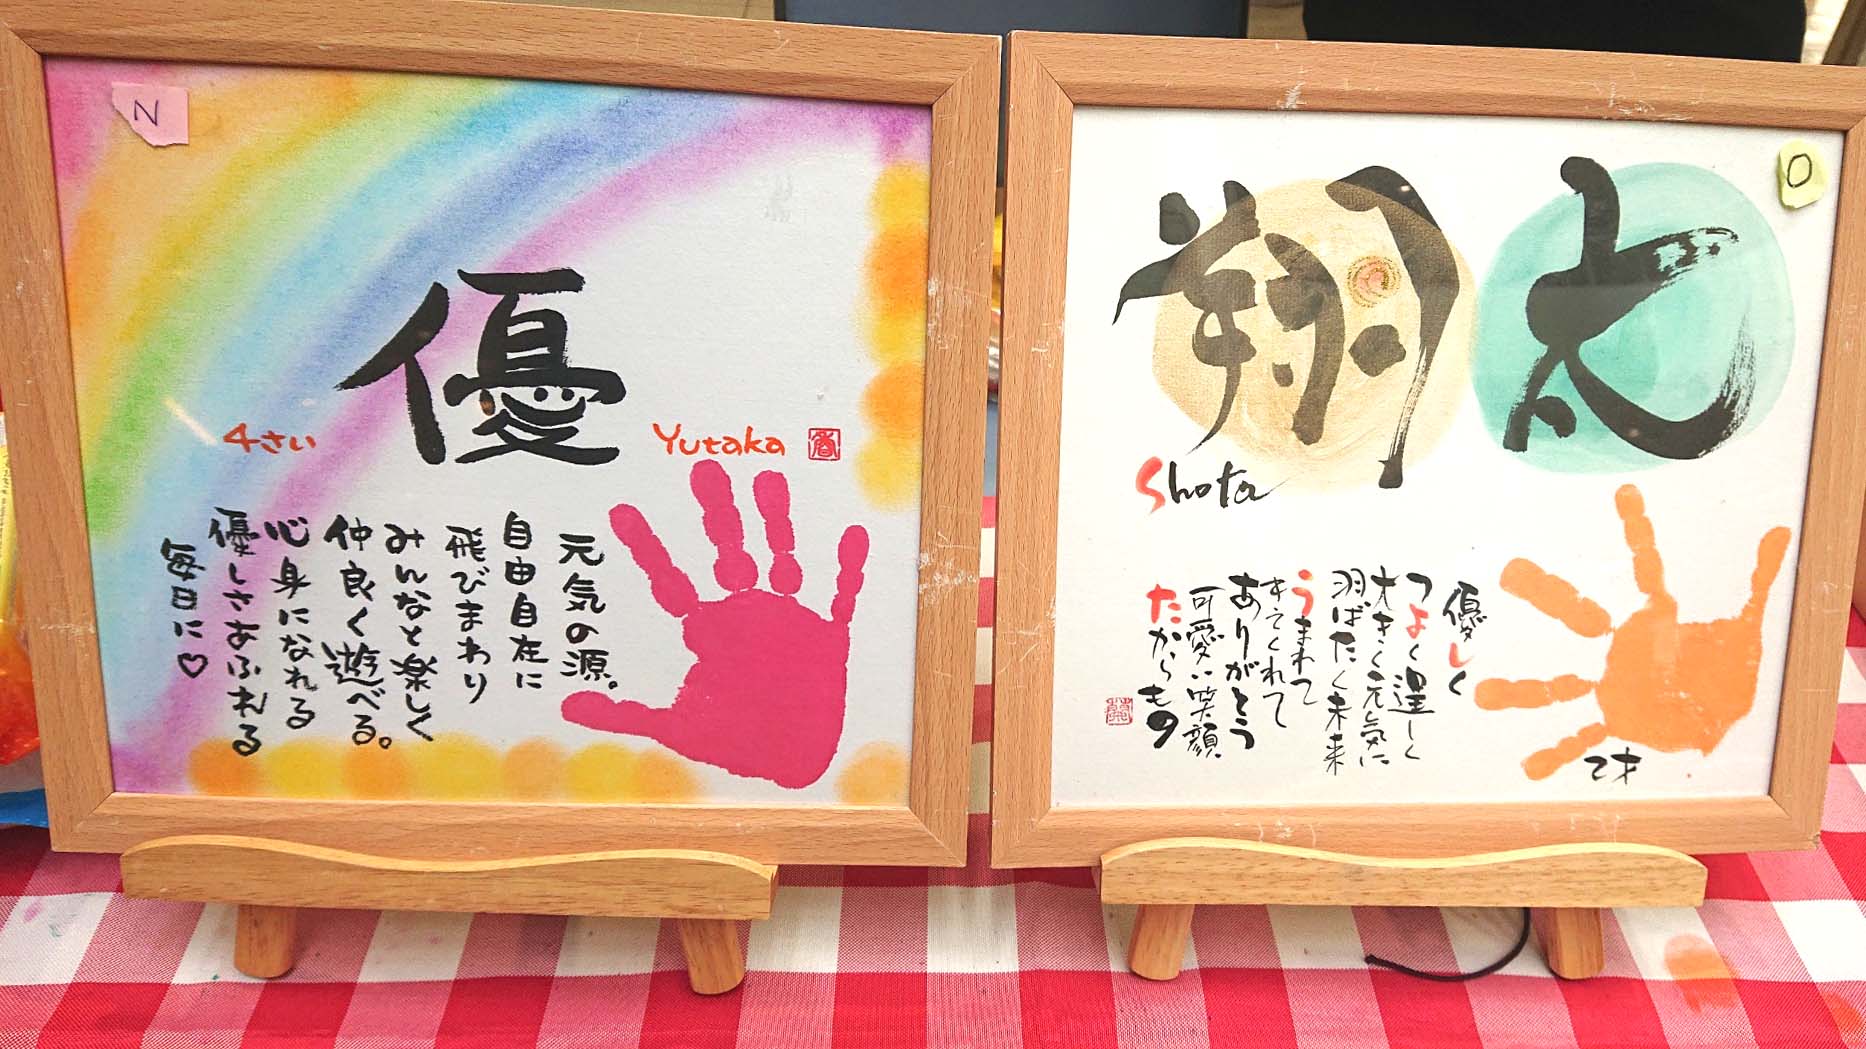 N
優
4さい
Yutaka
元気の源。
自由自在に
飛びまわり
みんなと楽しく
仲良く遊べる。
心身になれる
優しさあふれる
毎日に♡
O
翔太
Shota
優しく
つよく逞しく
大きく元気に
羽ばたく未来
うまれて
きてくれて
ありがとう
可愛い笑顔
たからもの
2才